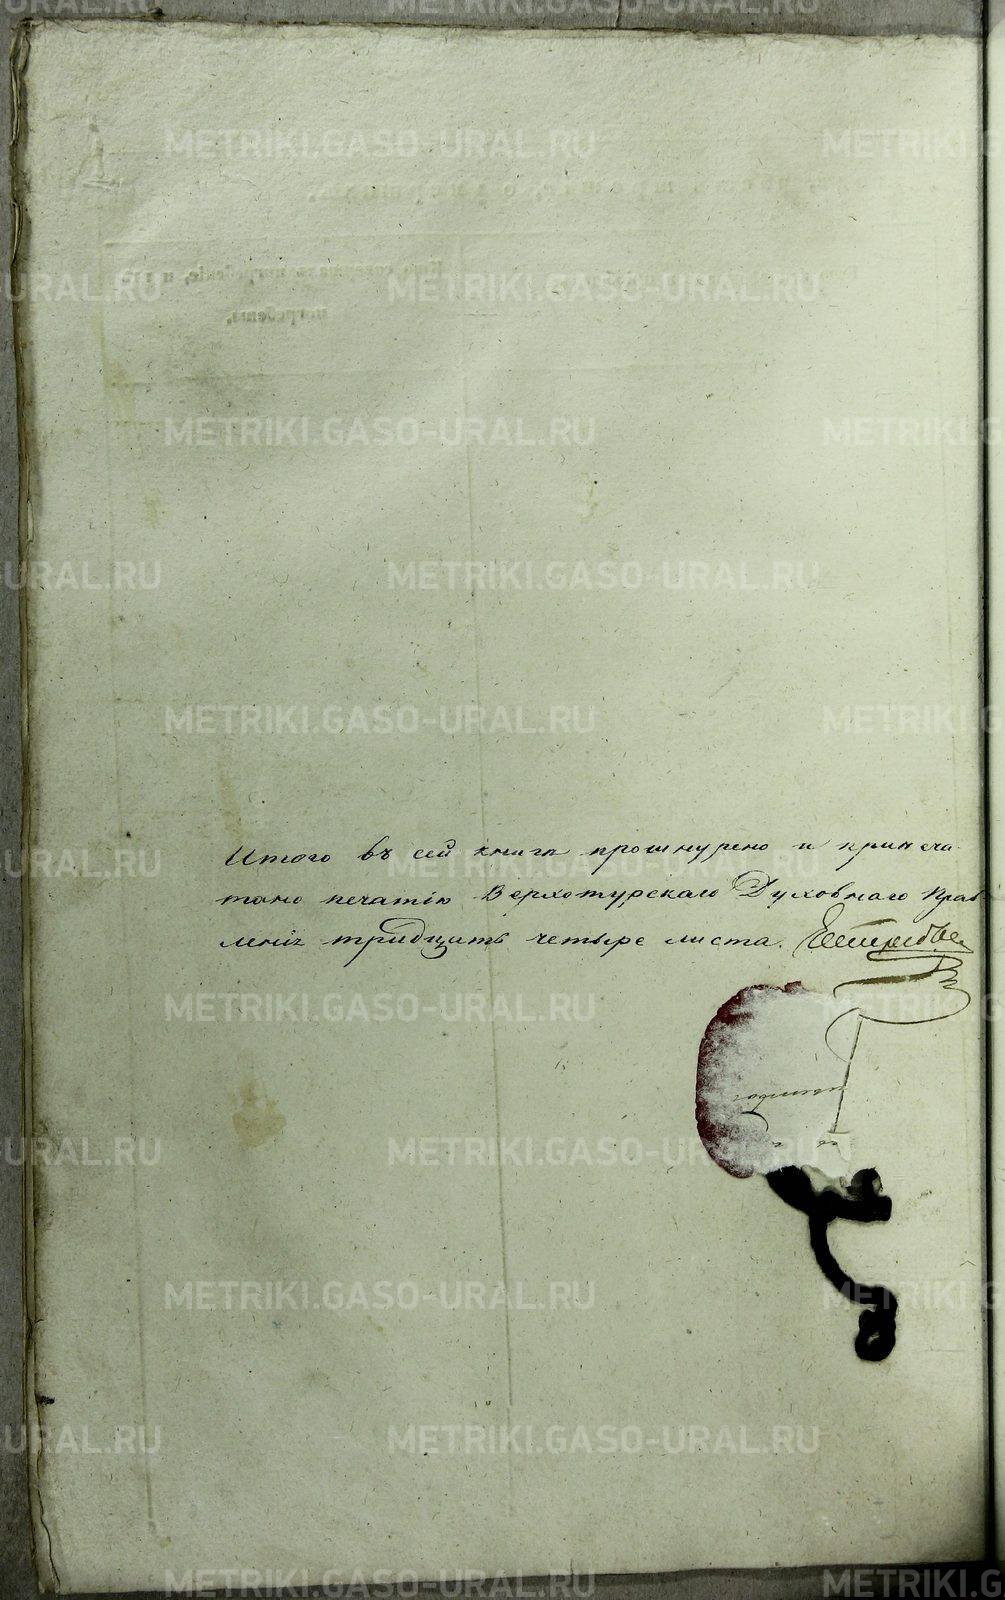 Итого въ сей книгѣ прошнурено и припеча-
тано печатію Верхотурскаго Духовнаго Прав-
ленія тридцать четыре листа.
METRIKI.GASO-URAL.RU